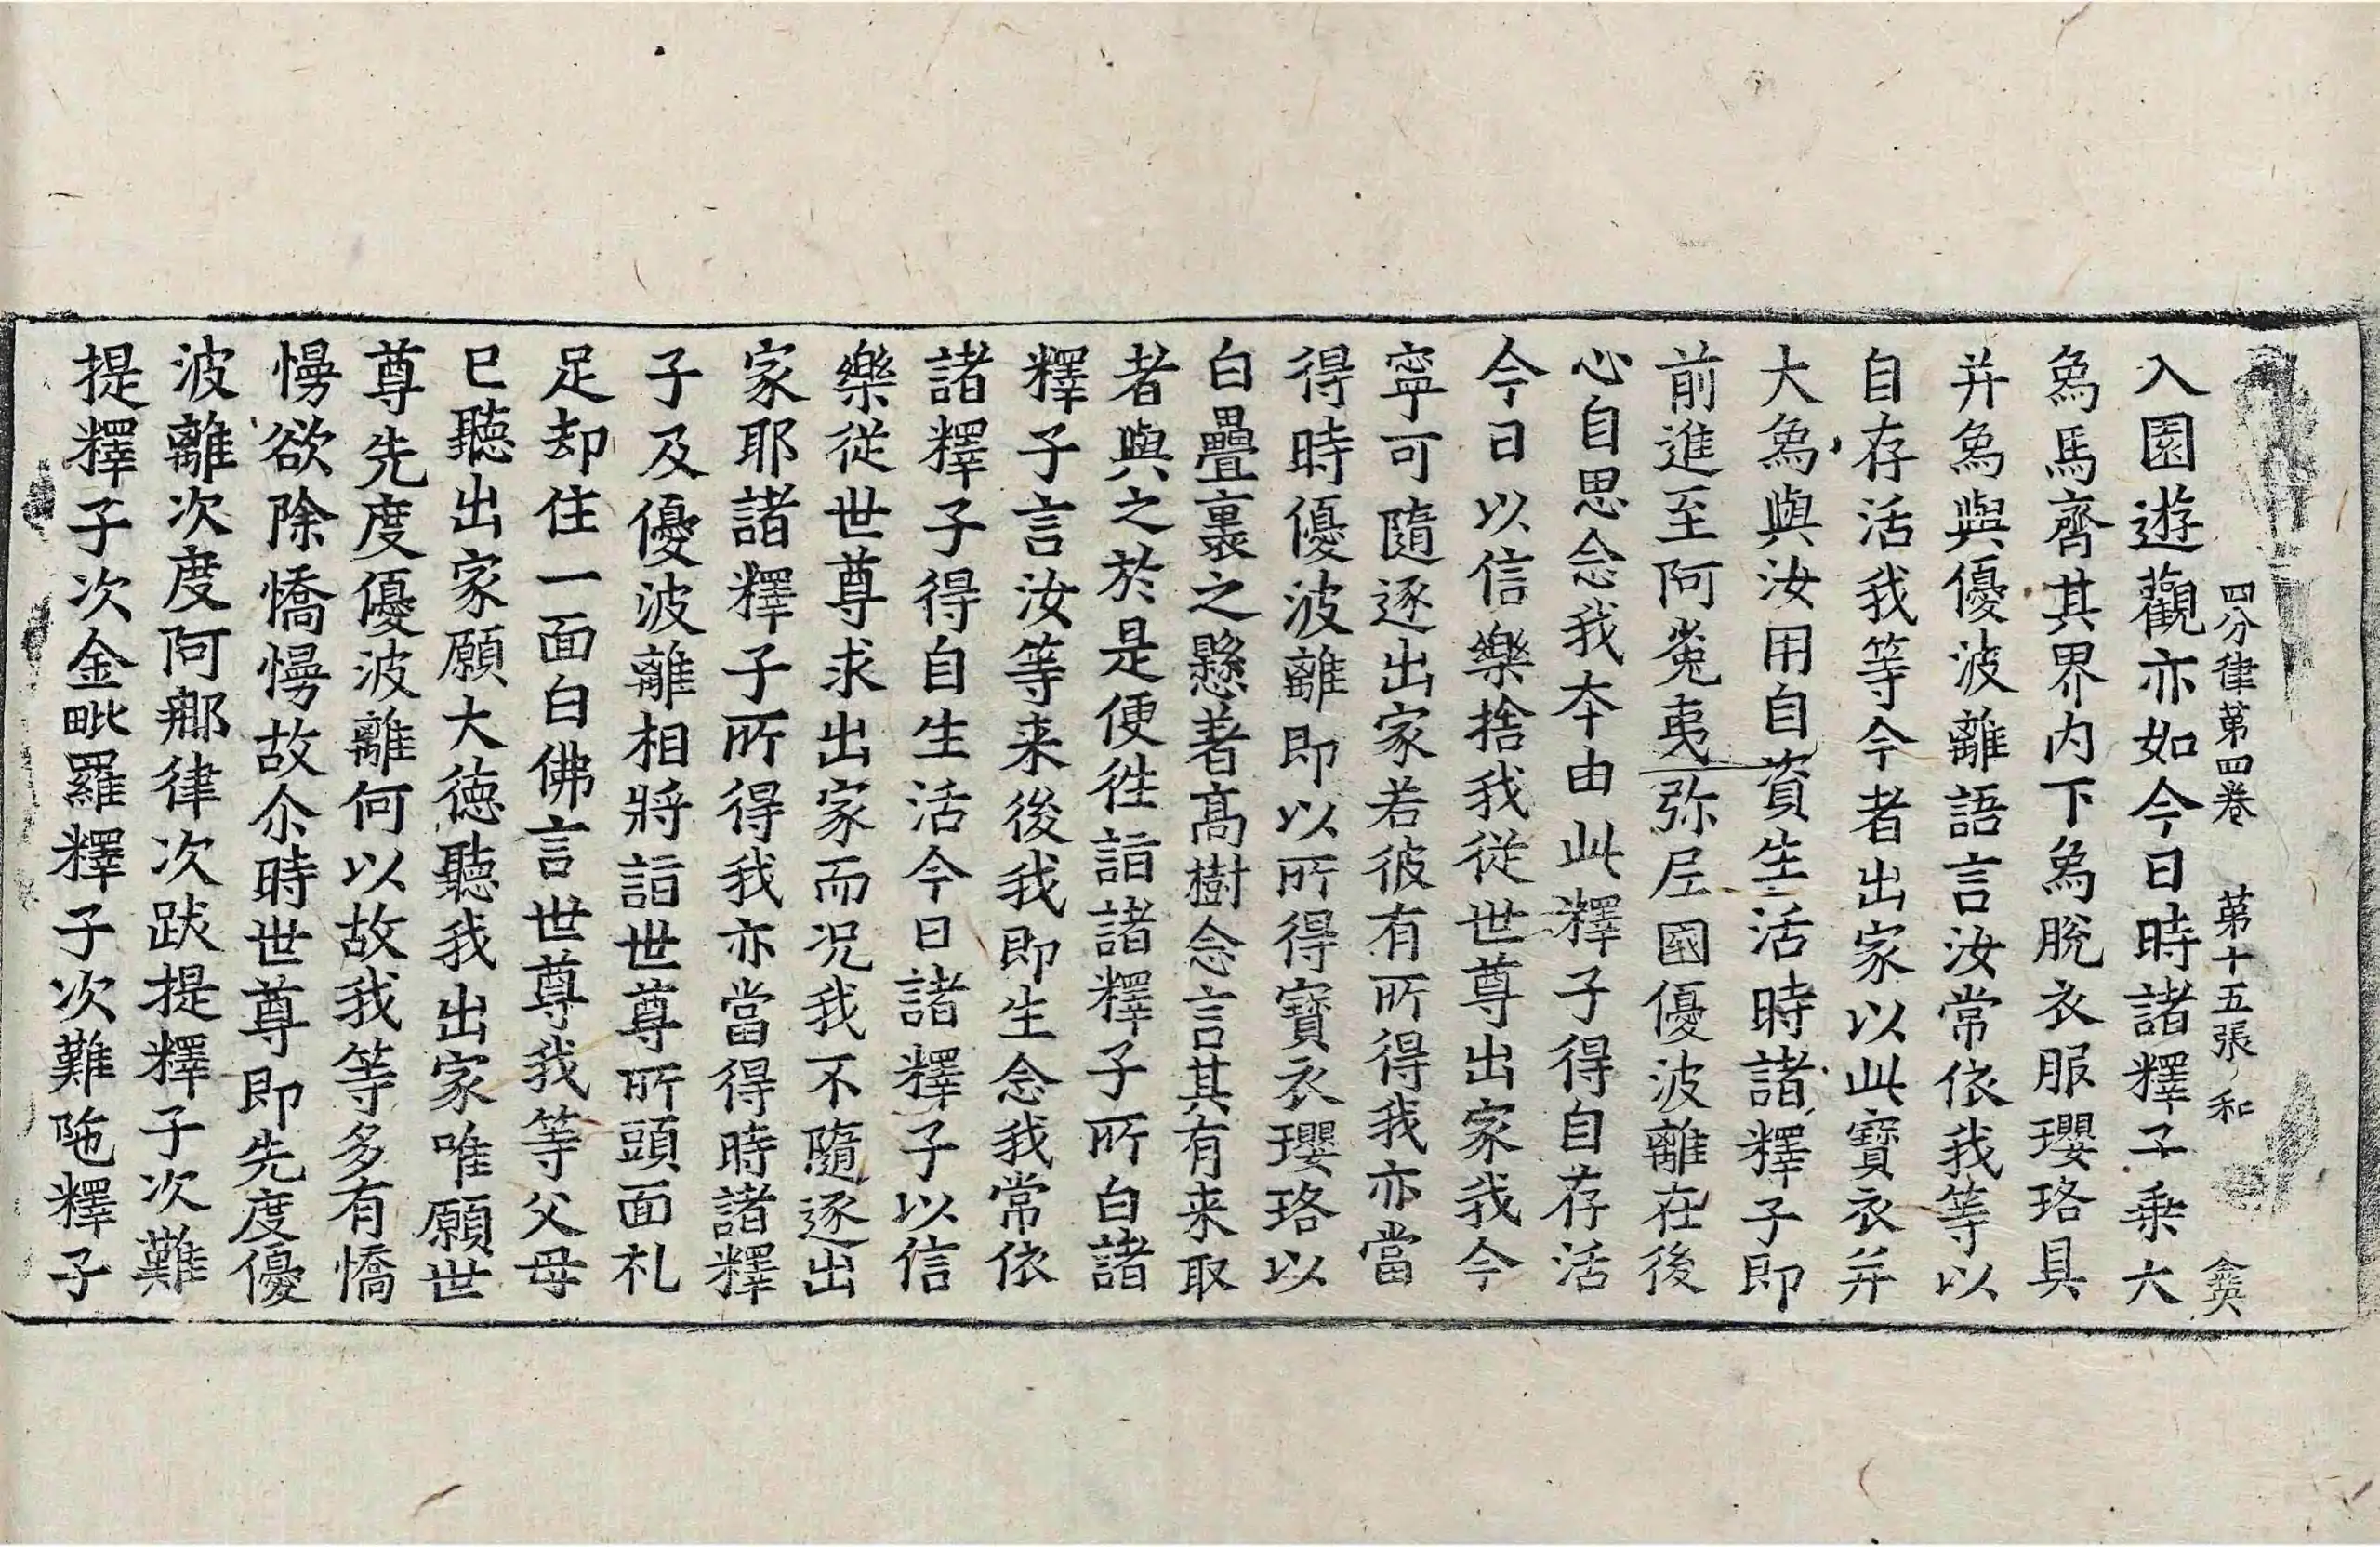 四分律第四卷 第十五張 和
入園遊觀亦如今日時諸釋子乗大
象馬齊其界内下象脫衣服瓔珞具
并象與優波離語言汝常依我等以
自存活我等今者出家以此寶衣并
大象與汝用自資生活時諸釋子即
前進至阿㝹夷弥尼國優波離在後
心自思念我夲由此釋子得自存活
今日以信樂捨我従世尊出家我今
寧可隨逐出家若彼有所得我亦當
得時優波離即以所得寶衣瓔珞以
白疊裹之懸著髙樹念言其有来取
者與之於是便徃詣諸釋子所白諸
釋子言汝等来後我即生念我常依
諸釋子得自生活今日諸釋子以信
樂従世尊求出家而况我不隨逐出
家耶諸釋子所得我亦當得時諸釋
子及優波離相將詣世尊所頭面礼
足却住一面白佛言世尊我等父母
已聽出家願大徳聽我出家唯願世
尊先度優波離何以故我等多有憍
慢欲除憍慢故尒時世尊即先度優
波離次度阿那律次跋提釋子次難
提釋子次金毗羅釋子次難陁釋子